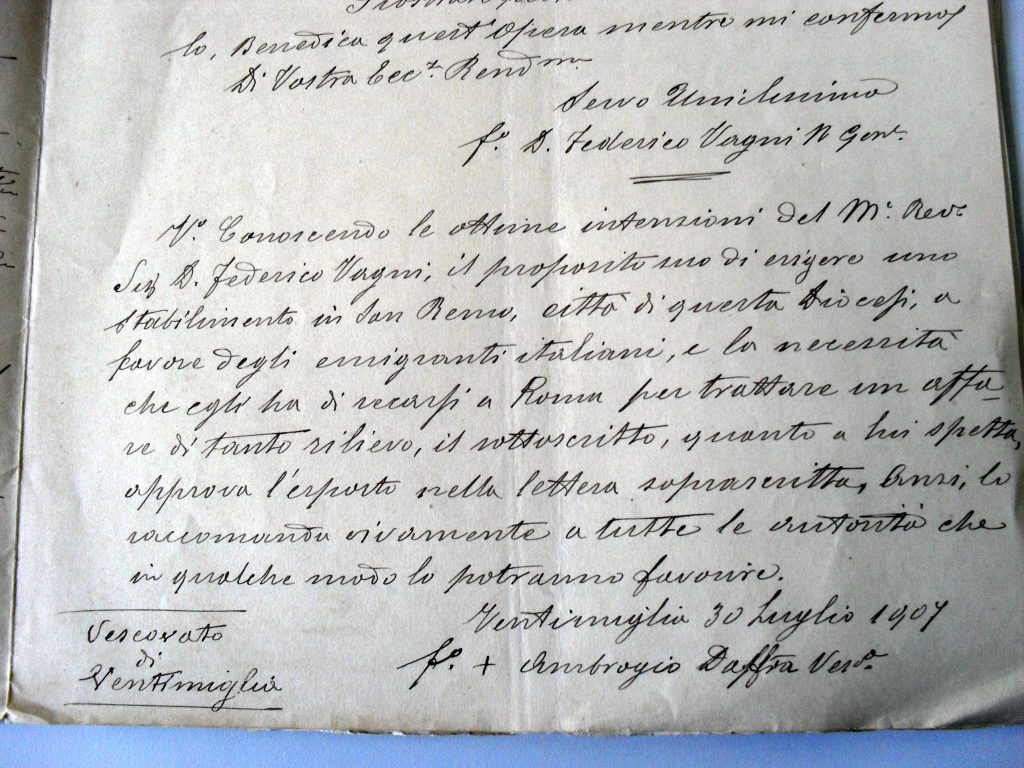 lo, Benedica quest'Opera mentre mi confermo
Di Vostra Ecc.za Rendma
Servo Umilissimo
f.o D. Federico Vagni
V.o Conoscendo le ottime intenzioni del M.to Rev.
D. Federico Vagni, il proposito suo di erigere uno
stabilimento in San Remo, città di questa Diocesi, a
favore degli emigranti italiani, e la necessità
che egli ha di recarsi a Roma per trattare un affa-
re di tanto rilievo, il sottoscritto, quanto a lui spetta,
approva l'esposto nella lettera soprascritta, Anzi, lo
raccomanda vivamente a tutte le autorità che
in qualche modo lo potranno favorire.
Ventimiglia 30 Luglio 1907
f.o + Ambrogio Daffra Vesc.o
Vescovato
di
Ventimiglia